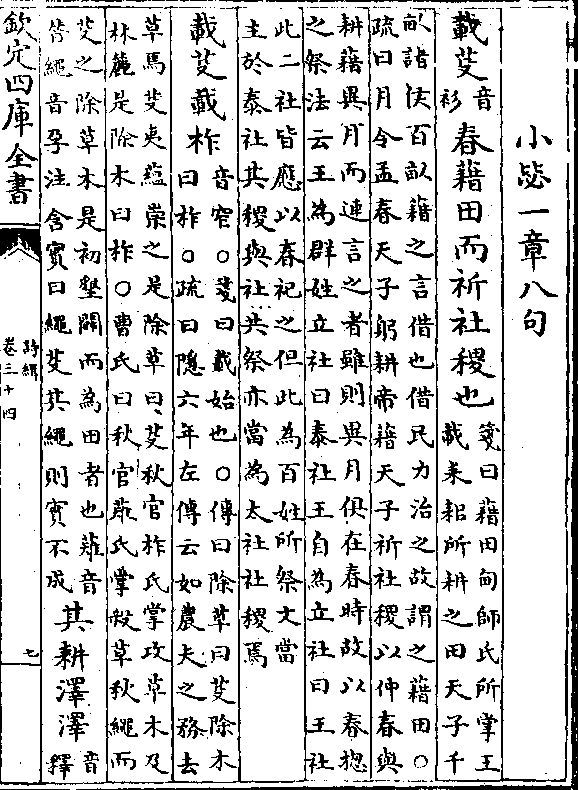 小毖一章八句
載芟音衫春藉田而祈社稷也箋曰藉田甸師氏所掌王
載耒耜所耕之田天子千
畝諸侯百畝藉之言借也借民力治之故謂之藉田○
疏曰月令孟春天子躬耕帝藉天子祈社稷以仲春與
耕藉異月而連言之者雖則異月俱在春時故以春揔
之祭法云王為群姓立社曰泰社王自為立社曰王社
此二社皆應以春祀之但此為百姓所祭文當
主於泰社其稷與社共祭亦當為太社社稷焉
載芟載柞音窄○箋曰載始也○傳曰除草曰芟除木
曰柞○疏曰隱六年左傳云如農夫之務去
草焉芟夷蘊崇之是除草曰芟秋官柞氏掌攻草木及
林麓是除木曰柞○曹氏曰秋官薙氏掌殺草秋繩而
芟之除草木是初墾闢而為田者也薙音
替繩音孕注含實曰繩芟其繩則實不成
其耕澤澤音釋
欽定四庫全書
詩緝
卷三十四
七